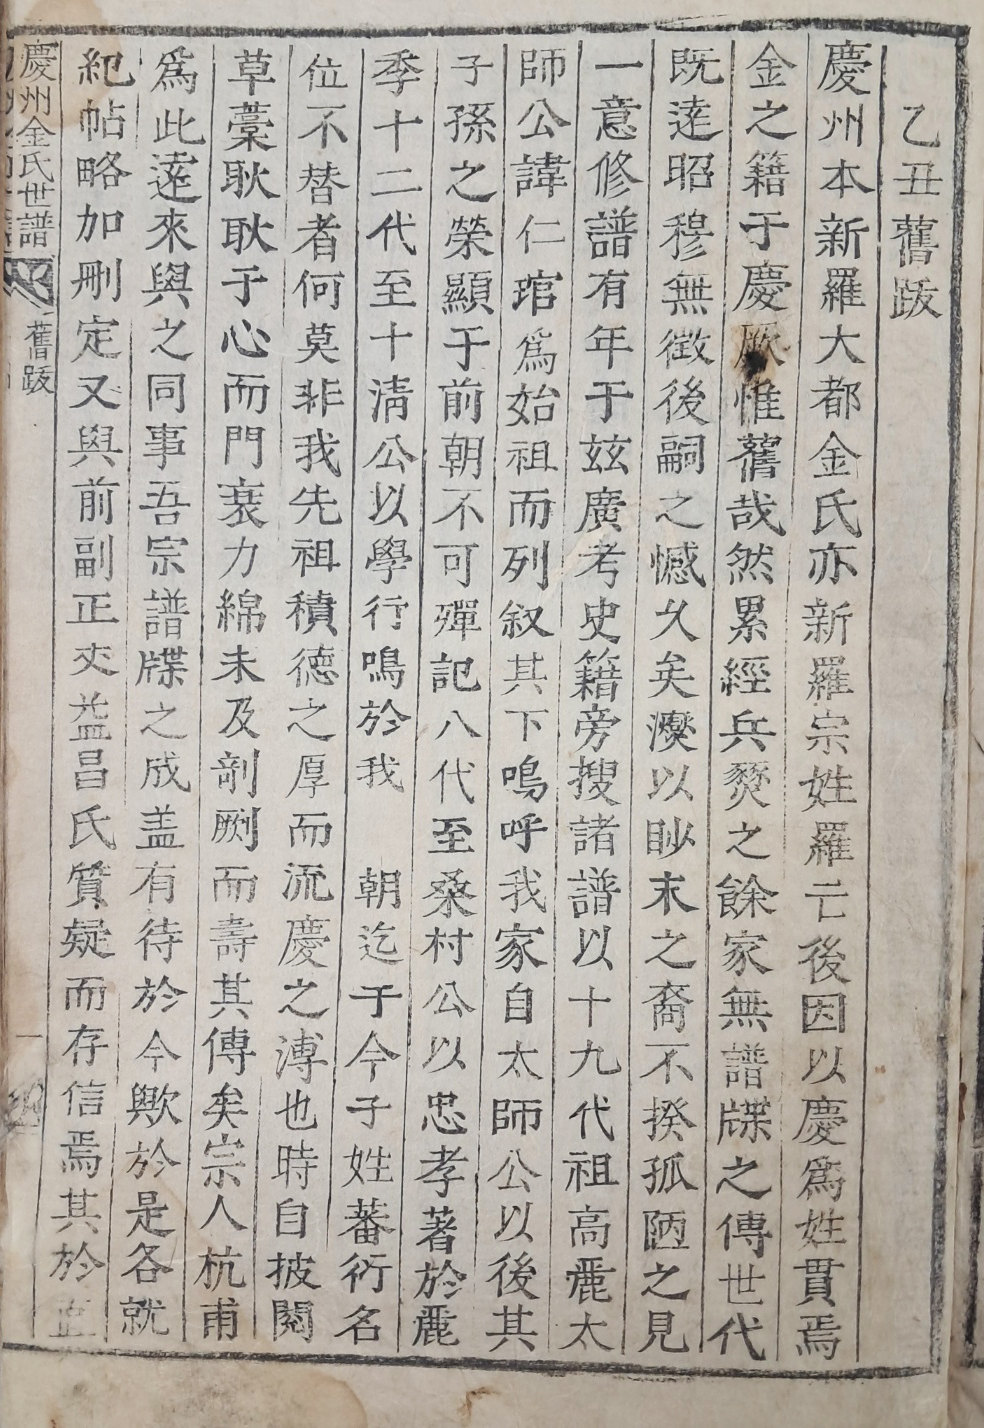 乙丑舊跋
慶州本新羅大都金氏亦新羅宗姓羅亡後因以慶爲姓貫焉
金之籍于慶厥惟舊哉然累經兵燹之餘家無譜牒之傳世代
既逺昭穆無徵後嗣之憾久矣濙以眇末之裔不揆孤陋之見
一意修譜有年于玆廣考史籍旁搜諸譜以十九代祖高麗太
師公諱仁琯爲始祖而列叙其下鳴呼我家自太師公以後其
子孫之榮顯于前朝不可殫記八代至桑村公以忠孝著於麗
季十二代至十淸公以學行鳴於我　朝迄于今子姓蕃衍名
位不替者何莫非我先祖積德之厚而流慶之溥也時自披閱
草藁耿耿于心而門衰力綿未及剞劂而壽其傳矣宗人杭甫
爲此逺來與之同事吾宗譜牒之成盖有待於今歟於是各就
紀帖略加刪定又與前副正夾益昌氏質疑而存信焉其於
慶州金氏世譜
舊跋
一